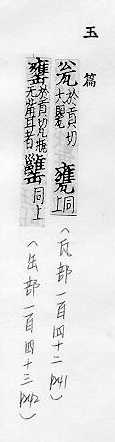 玉篇
瓮於貢切大甖 甕同上
(瓦部一百四十二)
罋於貢切汲瓶 同上
(缶部一百四十三)